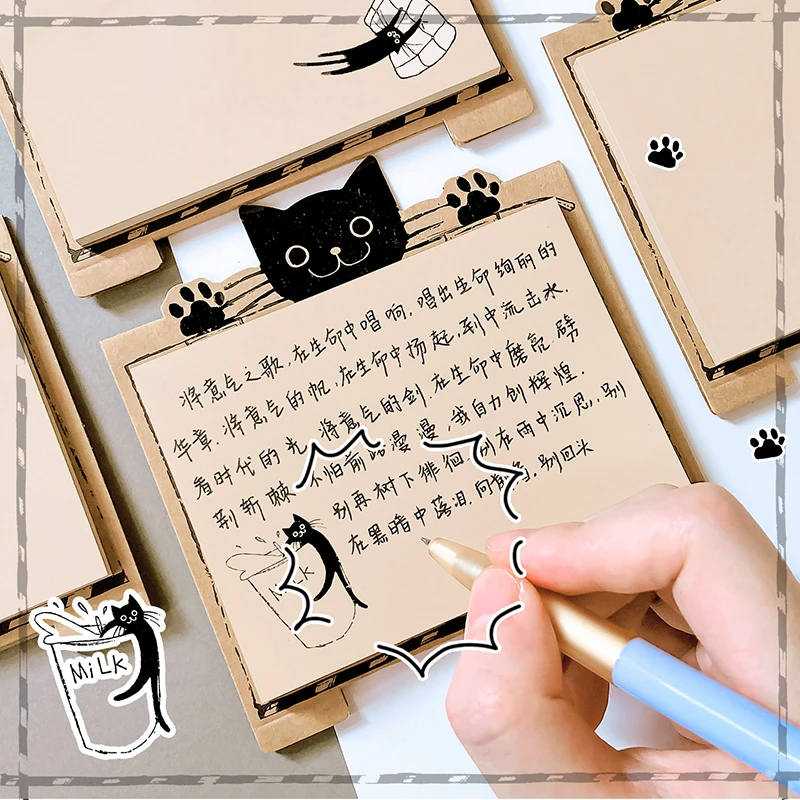 将意气之歌.在生命中唱响.唱出生命绚丽的
华章.将意气的帆.在生命中扬起.到中流击水.
看时代的光 将意气的剑.在生命中磨亮.劈
荆斩棘 不怕前路漫漫.我自力创辉煌.
别再树下徘徊 别在雨中沉思.别
在黑暗中落泪.向前看.别回头
MILK
MiLK